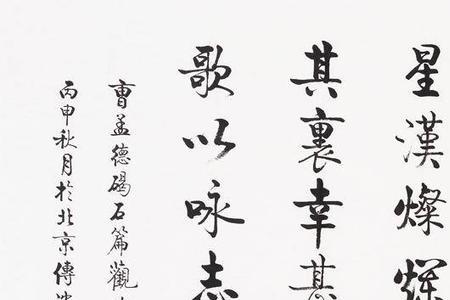 星漢燦爛
其裏幸甚
歌以咏志
曹孟德碣石篇觀
丙申秋月於北京傳